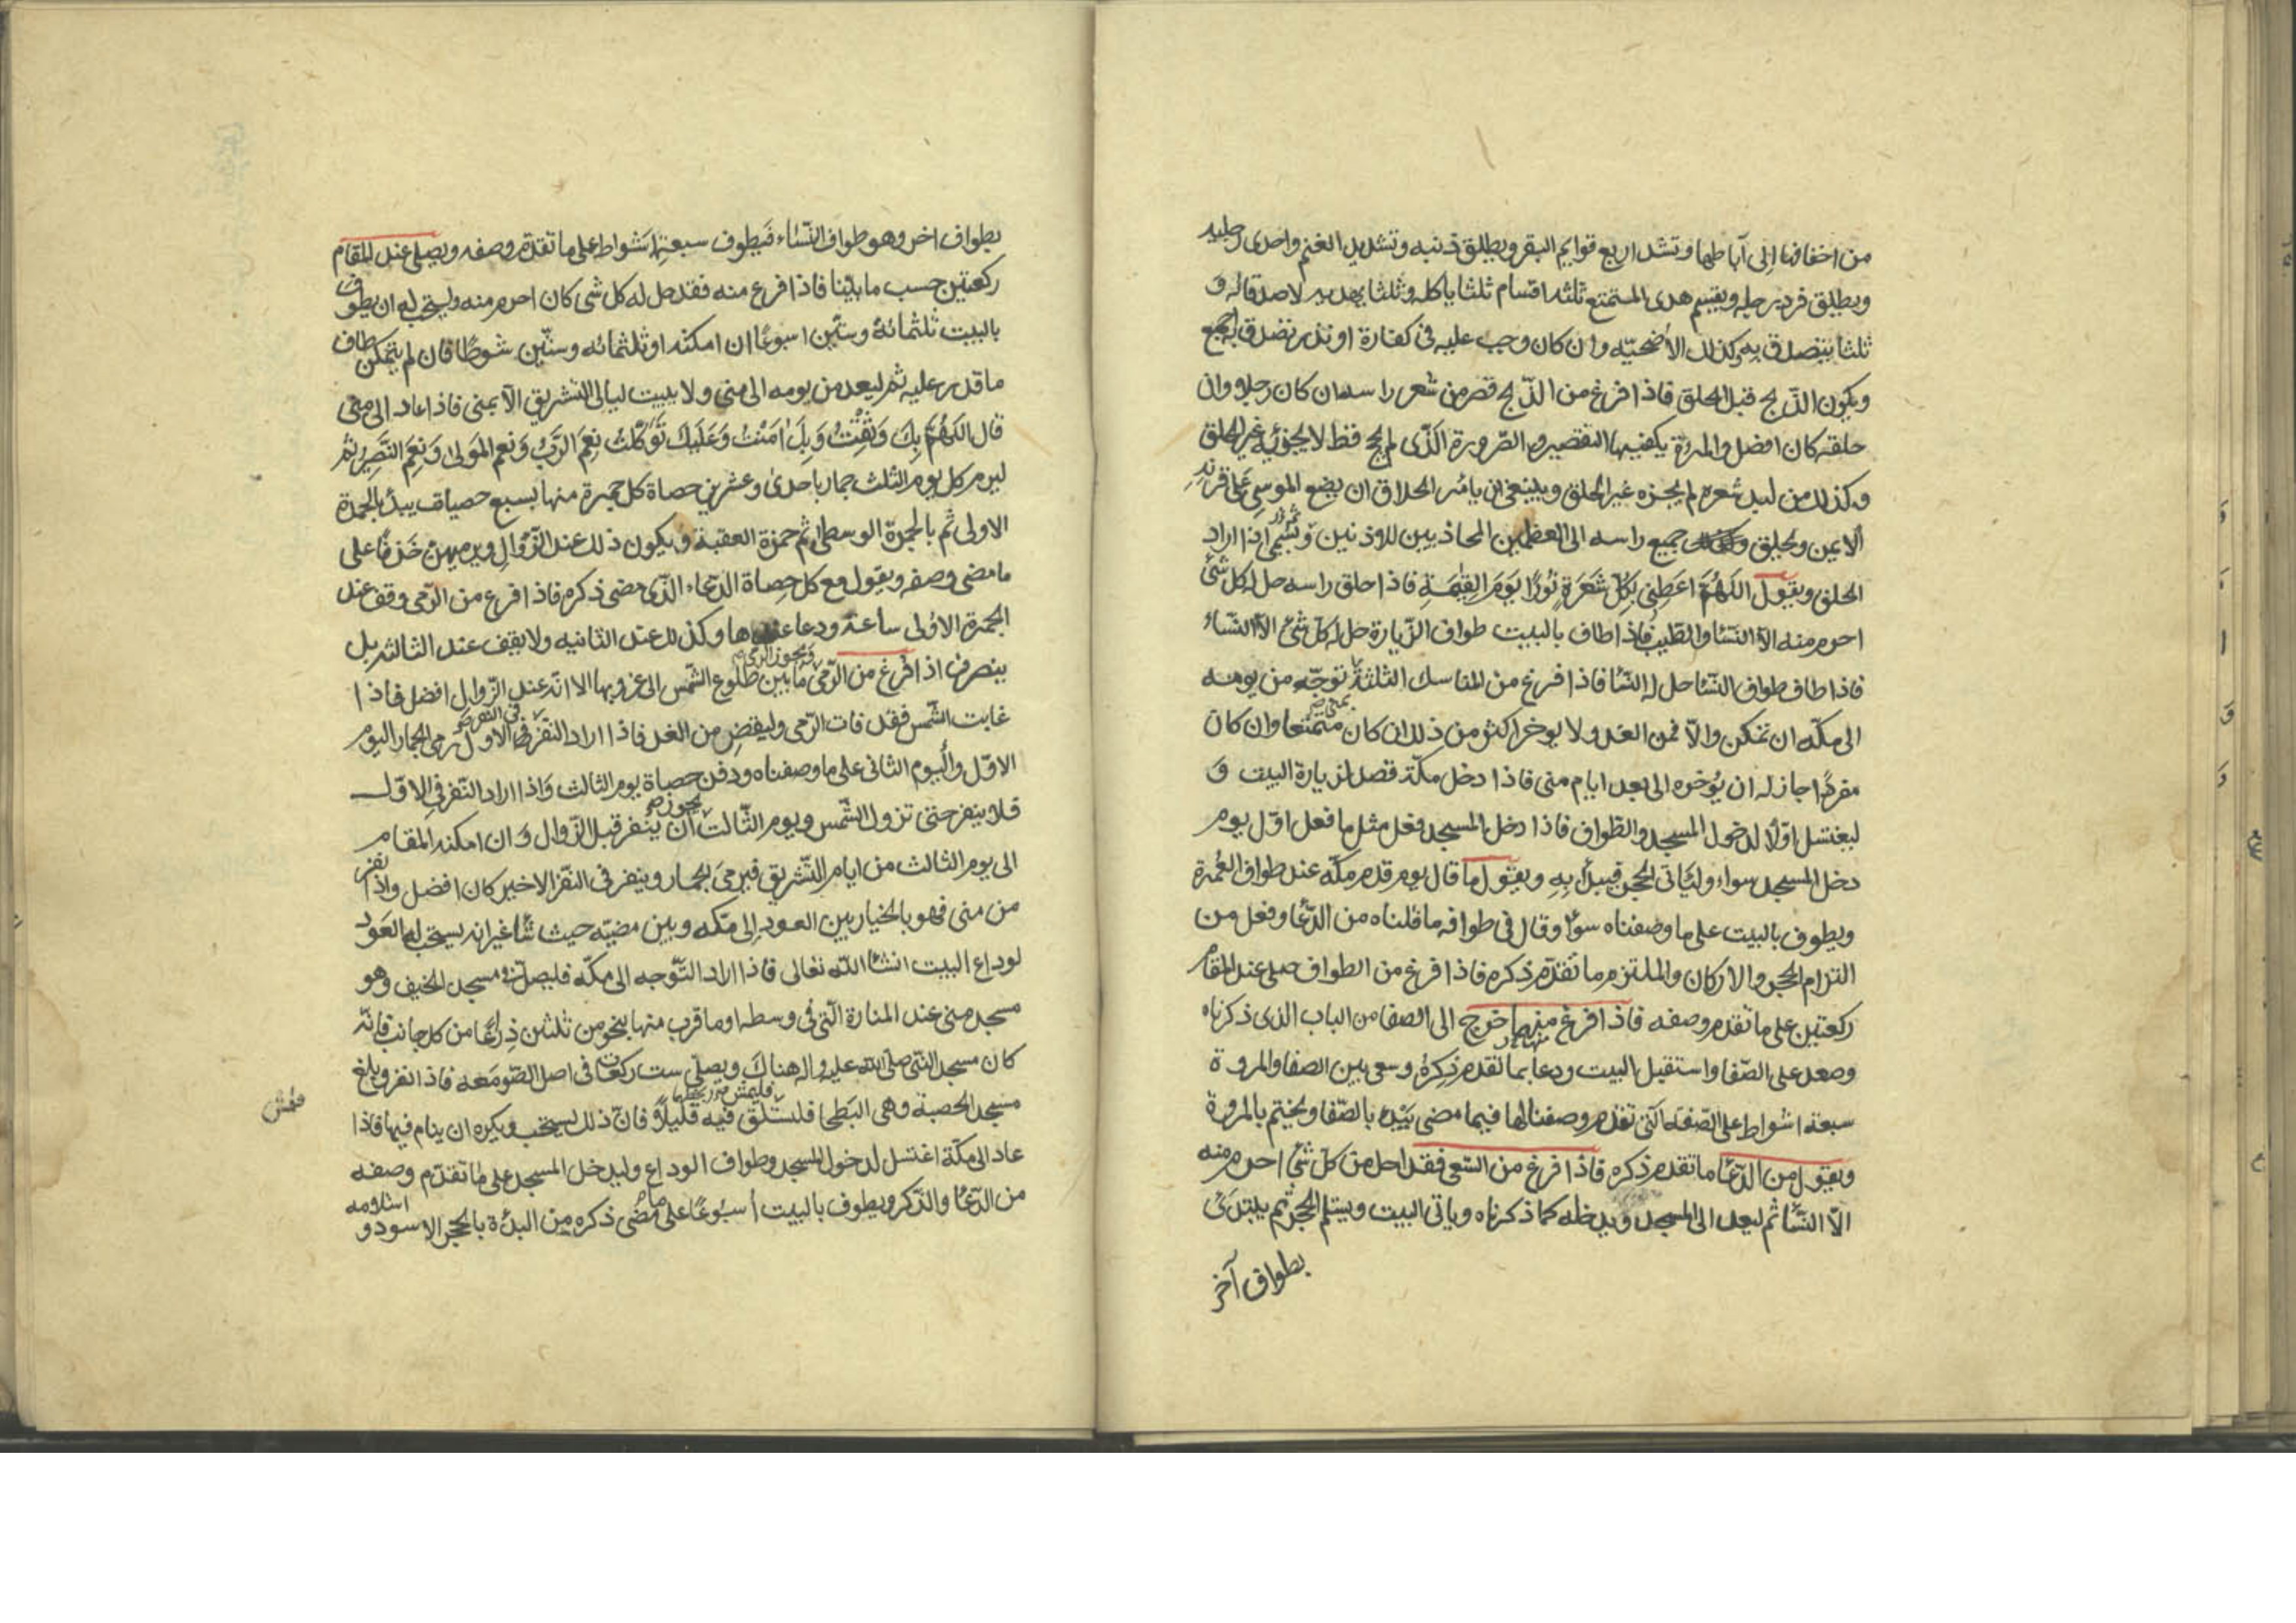 من اخفافها إلى آباطها وتشد اربع قوايم البقر ويطلق ذنبه وتشد يدي الغنم واحدى رجليه
ويطلق فرد رجله ويقسم هدى المتمتع ثلثة اقسام ثلثا ياكله وثلثا يهديه لاصدقائه و
ثلثا يتصدق به وكذلك الأضحيّه وان كان وجب عليه فى كفارة او نذر تصدق به اجمع
ويكون الذّبح قبل الحلق فاذا فرغ من الذّبح قصر من شعر راسه ان كان رجلا وان
حلقه كان افضل والمرءة يكفيها التقصير والصّرورة الّذى لم يحج قط لا يجزيه غير الحلق
وكذلك من لبد شعره لم يجزه غير الحلق وينبغى ان يامر الحلاق ان يضع الموسى على قرنه
الأيمن ويحلق جميع راسه الى العظمين المحاذيين للاذنين ويسمى اذا اراد
الحلق ويقول اللّهُمَّ اعَطِنِى بِكُلِّ شَعَرَةٍ نُورًا يَوَمَ القِيٰمَةِ فاذا حلق راسه حل له كل شئ
احرم منه الاّ النّسٰا والطّيب فاذا طاف بالبيت طواف الزّيارة حل له كل شئ الاّ النّساء
فاذا طاف طواف النّسٰا حل له النّسٰا فاذا فرغ من المناسك الثلثة بمنى توجّه من يومه
الى مكّه ان تمكن والاّ فمن الغد ولا يوخر اكثر من ذلك ان كان متمتعا وان كان
مفردًا جاز له ان يُوخره الى بعد ايام منى فاذا دخل مكّة قصد لزيارة البيت وَ
ليغتسل اوّلًا لدخول المسجد والطّواف فاذا دخل المسجد فعل مثل ما فعل اوّل يوم
دخل المسجد سواء وليَاتى الحجر فيبدأ بِهِ ويقول ما قال يوم قدم مكّه عند طواف العُمرة
ويطوف بالبيت على ما وصفناه سوٰا وقال فى طوافه ما قلناه من الدّعٰا وفعل من
التزام الحجر والاركان والملتزم ما تقدّم ذكره فاذا فرغ من الطواف صلى عند المقام
ركعتين على ما تقدم وصفه فاذا فرغ منهما خرج الى الصفا من الباب الذى ذكرناه
وصعد على الصّفا واستقبل البيت ودعا بما تقدم ذِكِرهُ وسعى بين الصفا والمروة
سبعة اشواط على الصّفه الّتى تقدم وصفنا لها فيما مضى يَبْدء بالصّفا ويختم بالمروة
ويقول من الدّعٰا ما تقدم ذكره فاذا فرغ من السّعى فقد احل من كل شئ احرم منه
الاّ النّسٰا ثم ليعد الى المسجد ويدخله كما ذكرناه وياتى البيت ويستلم الحجر ثم يبتدئ
بطواف آخر
بطواف اخر وهو طواف النّسٰاء فَيطوف سبعة اشواط على ما تقدّم وصفه ويصلى عند المقام
ركعتين حسب ما بيّنا فاذا فرغ منه فقد حل له كل شى كان احرم منه ويستحب له ان يطوف
بالبيت ثلثمائة وستّين اسبوعًا ان امكنه او ثلثمائه وستّين شوطًا فان لم يتمكن طاف
ما قدر عليه ثم ليعد من يومه الى منى ولا يبيت ليالى التشريق الاّ بمنى فاذا عاد الى منى
قال اللّهُمَّ بِكَ وَثِقْتُ وَبِكَ اٰمَنْتُ وَعَلَيكَ تَوَكَّلتُ نِعِمَ الرَّبُّ وَنِعم المَولىٰ وَنِعمَ النَّصِير ثم
ليرم كل يوم الثلث جمار باحدىٰ وعشرين حصاة كل جمرة منها بسبع حصيات يبدأ بالجمرة
الاولى ثم بالجمرة الوسطى ثم جمرة العقبة ويكون ذلك عند الزّوال ويرميهنّ خَذفًا على
ما مضى وصفه ويقول مع كل حصاة الدّعاء الذّى مضى ذكره فاذا فرغ من الرّمى وقف عند
الجمرة الاولى ساعة ودعا عندها وكذلك عند الثانيه ولا يقف عند الثالثه بل
ينصرف اذا فرغ من الرّمى ويجوز الرمى ما بين طلوع الشّمس الى غروبها الا انه عند الزّوال افضل فاذا
غابت الشّمس فقد فات الرّمى وليقضِ من الغد فاذا اراد النّفر فى النفر الاول رمى الجمار اليوم
الاوّل واليوم الثانى على ما وصفناه ودفن حصاة يوم الثالث وَاذا اراد النّفر فى الاوّل
فلا ينفر حتى تزول الشّمس ويوم الثّالث يجوز ان ينفر قبل الزّوال وَان امكنه المقام
الى يوم الثالث من ايام التّشريق فيرمىَ الجمار وينفر فى النّفر الاخير كان افضل واذا نفر
من منى فهو بالخيار بين العود إلى مكّه وبين مضيّه حيث شٰا غير انه يستحب له العَود
لوداع البيت انشٰا الله تعالى فاذا اراد التّوجه الى مكّه فليصل فى مسجد الخيف وهو
مسجد منى عند المنارة الّتى فى وسطه او ما قرب منها بنحو من ثلثين ذِراعًا من كل جانب فانّه
كان مسجد النّبى صلى الله عليه واله هناك ويصلّى ست ركعات فى اصل الصّومَعه فاذا نفر وبلغ
مسجد الحصبة وهى البَطحٰا فليستَلق فيه قليلاً فان ذلك يستحب ويكره ان ينام فيها فاذا
عاد الى مكّة اغتسل لدخول المسجد وطواف الوداع وليدخل المسجد على ما تقدّم وصفه
من الدّعٰا والذّكر ويطوف بالبيت أسبُوعًا على ما مضٰى ذكره من البدءة بالحجر الاسود و
استلامه